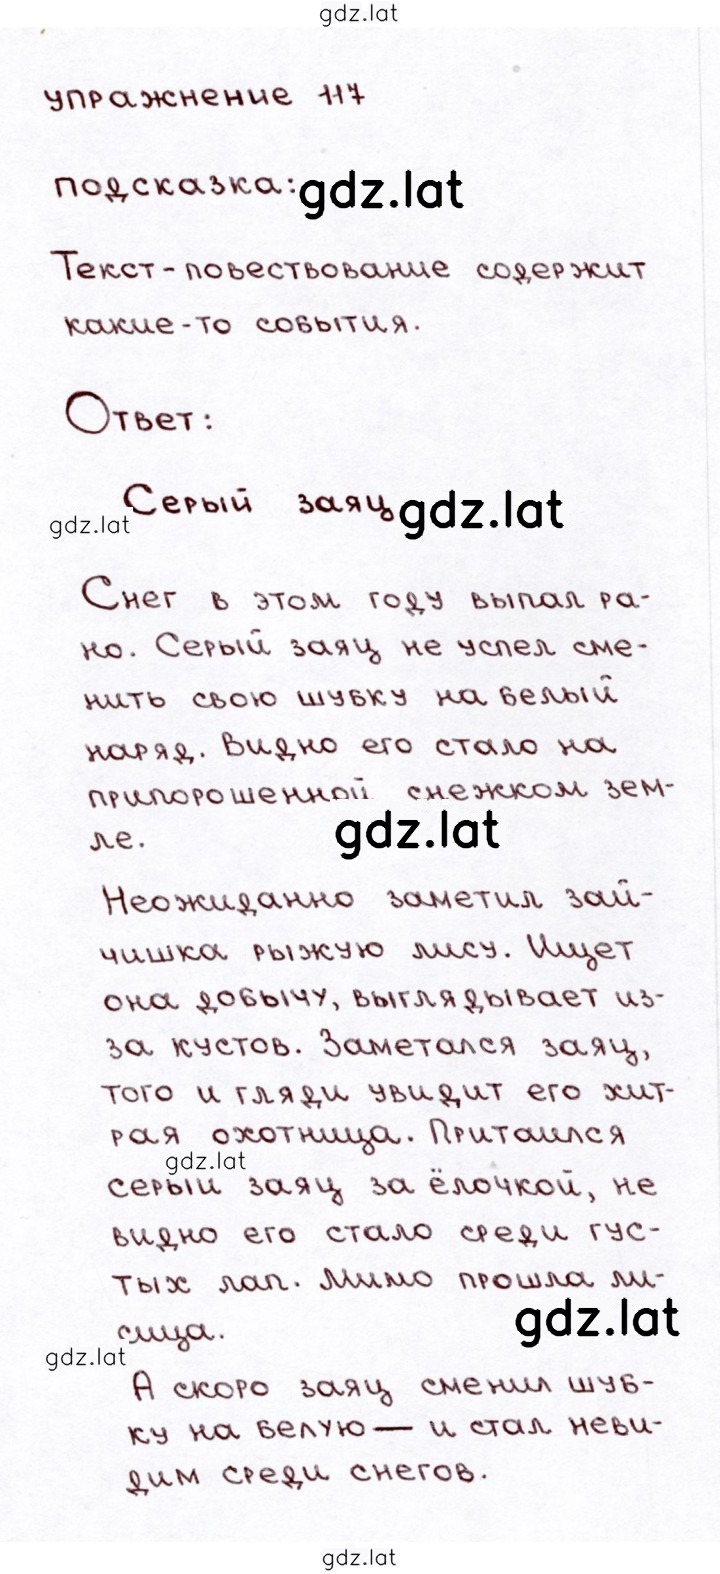 gdz.lat
упражнение 117
подсказка: gdz.lat
Текст-повествование содержит
какие-то события.
Ответ:
Серый заяц gdz.lat
gdz.lat
Снег в этом году выпал ра-
но. Серый заяц не успел сме-
нить свою шубку на белый
наряд. Видно его стало на
припорошенной снежком зем-
ле.
gdz.lat
Неожиданно заметил зай-
чишка рыжую лису. Ищет
она добычу, выглядывает из-
за кустов. Заметался заяц,
того и гляди увидит его хит-
рая охотница. Притаился
gdz.lat
серый заяц за ёлочкой, не
видно его стало среди гус-
тых лап. Мимо прошла ли-
сица.
gdz.lat
gdz.lat
А скоро заяц сменил шуб-
ку на белую — и стал неви-
дим среди снегов.
gdz.lat